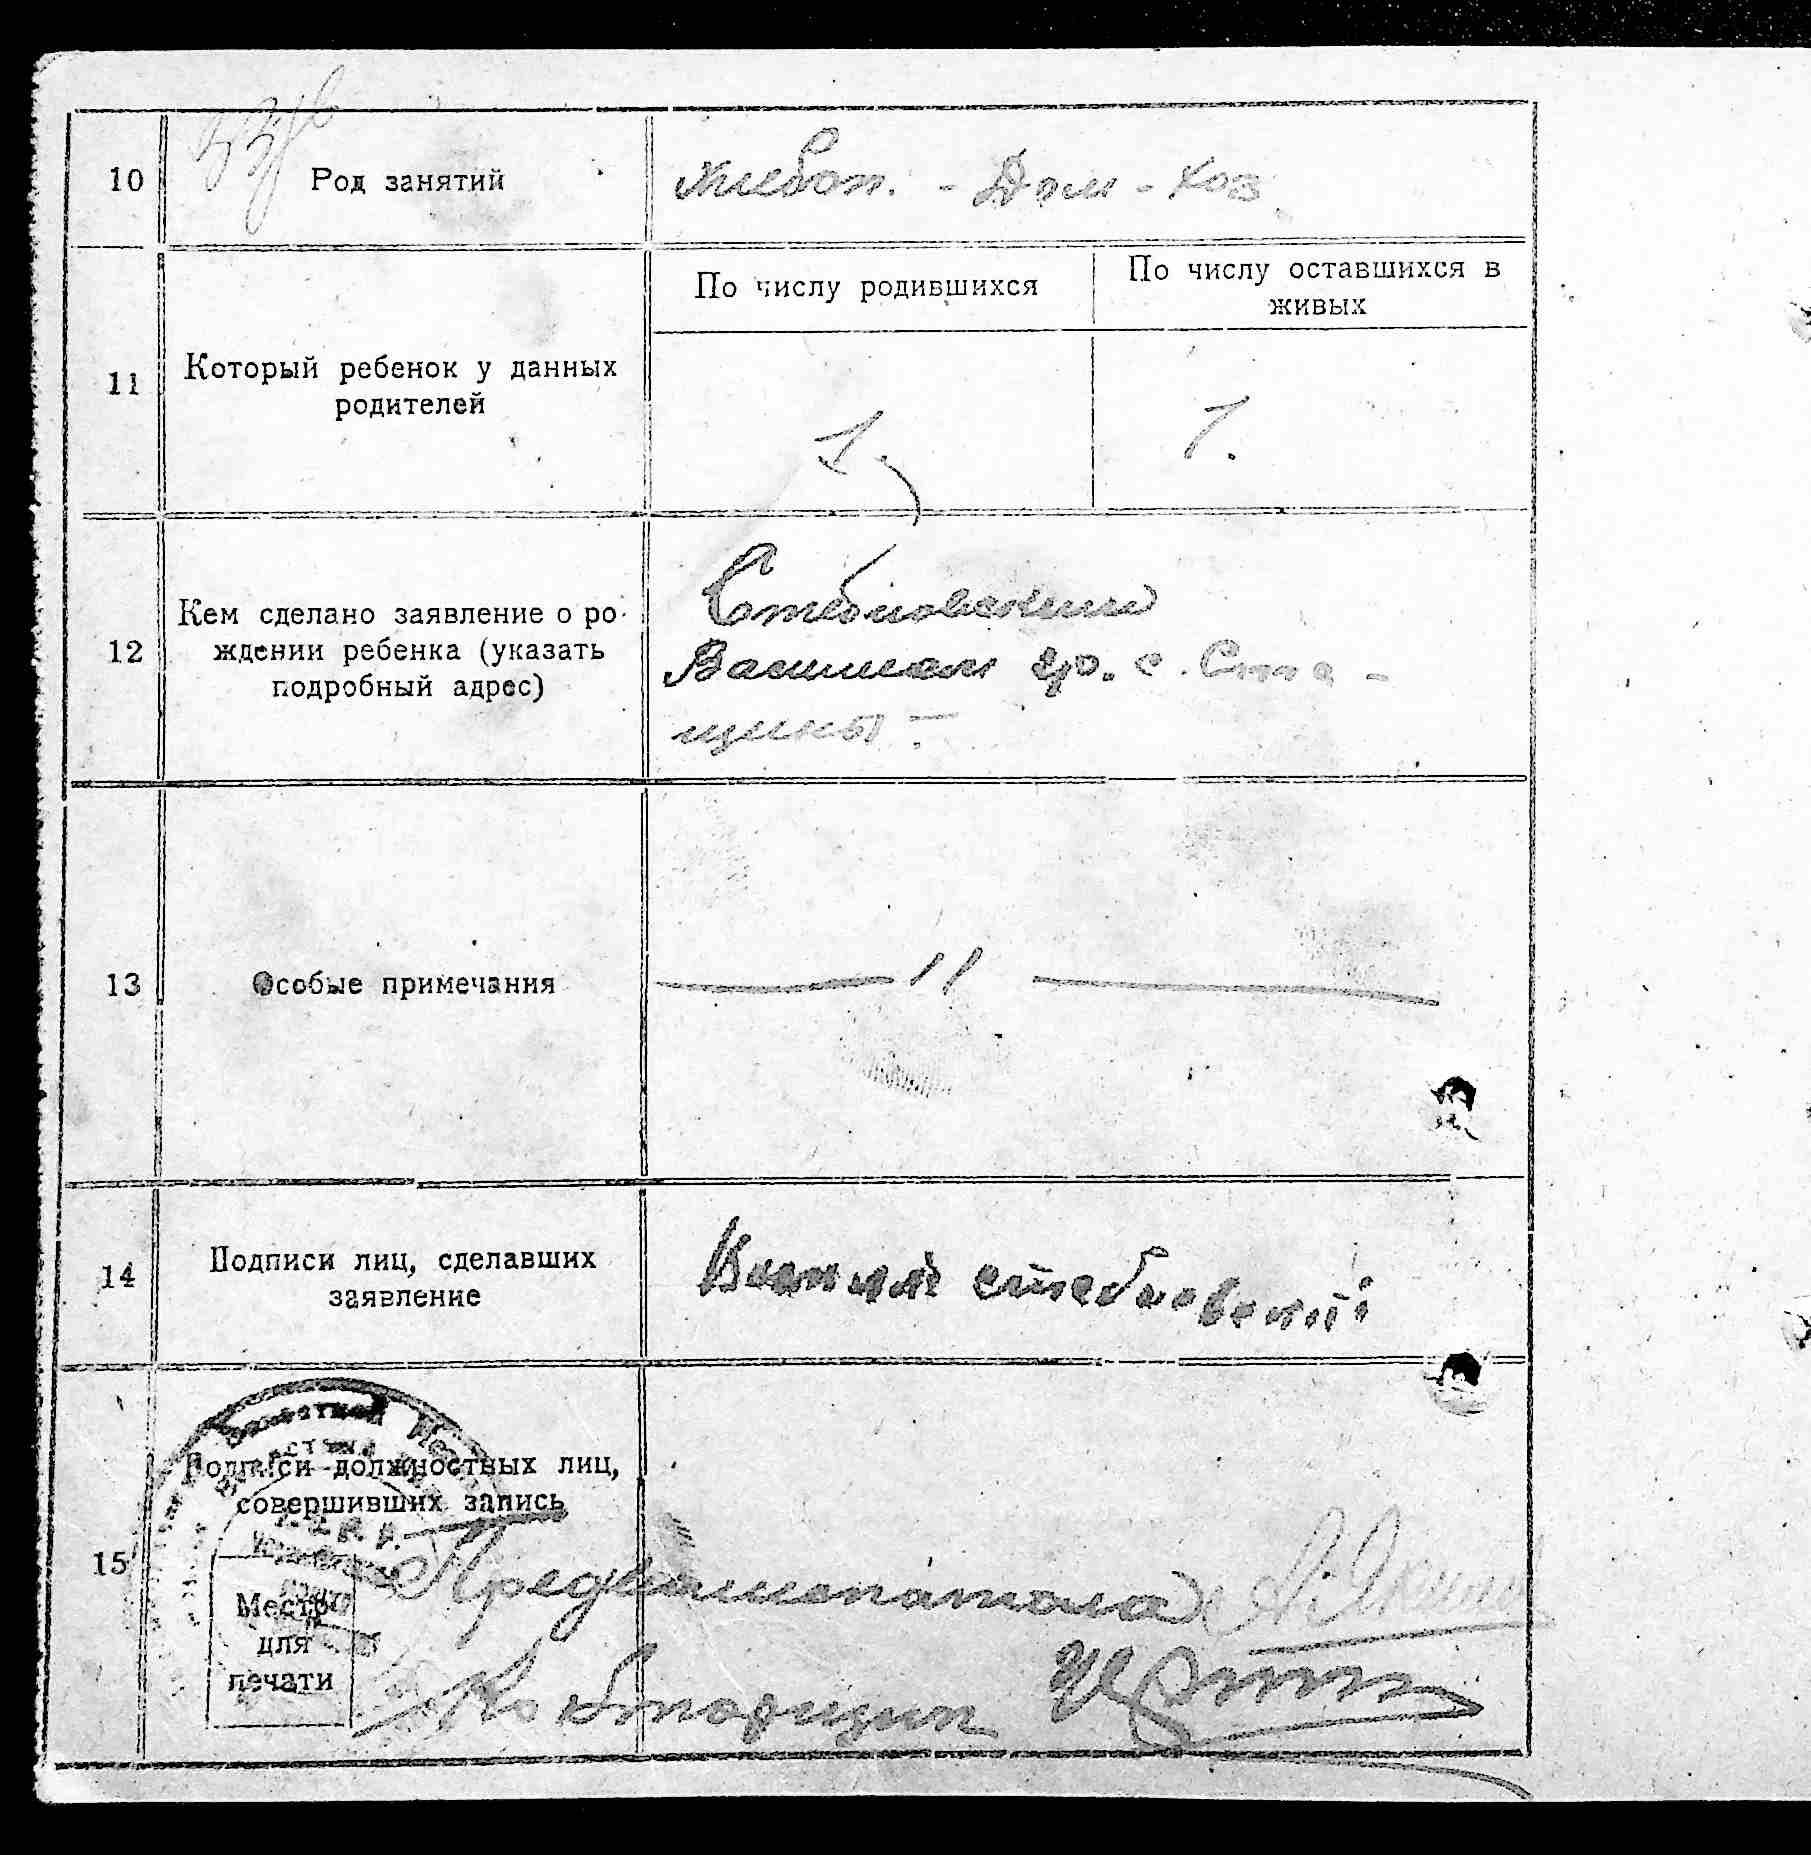 10
Род занятий
Хлебоп. - Дом - хоз.
По числу родившихся
По числу оставшихся в
живых
11
Который ребенок у данных
родителей
1.
1.
12
Кем сделано заявление о ро-
ждении ребенка (указать
подробный адрес)
Стебновским
Василием гр. с. Ста-
щины -
13
Особые примечания
— 11 —
14
Подписи лиц, сделавших
заявление
Василий стебновский
15
Подписи должностных лиц,
совершивших запись
Место
для
печати